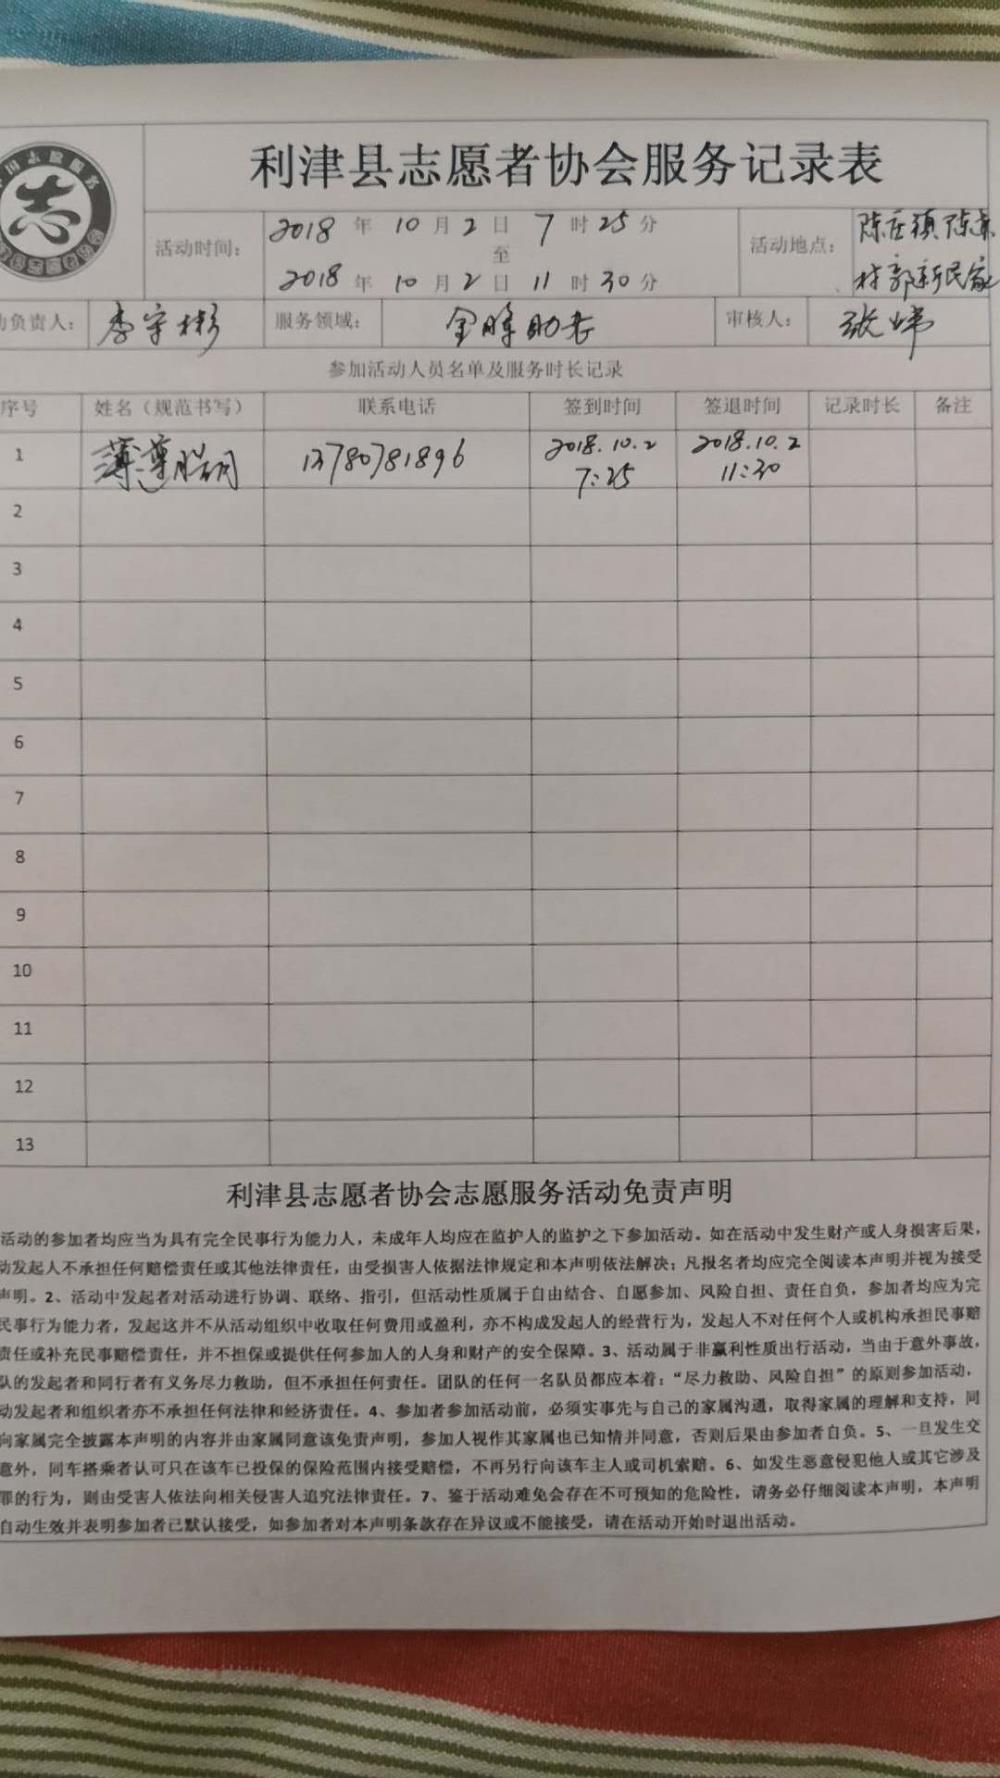 志
利津县志愿者协会服务记录表
活动时间： 2018 年 10 月 2 日 7 时 25 分
至
2018 年 10 月 2 日 11 时 30 分
活动地点： 陈庄镇陈
村郭新民家
动负责人： 李宇彬 服务领域： 金晖助老 审核人： 张炜
参加活动人员名单及服务时长记录
序号 姓名（规范书写） 联系电话 签到时间 签退时间 记录时长 备注
1 薄 13780781896 2018.10.2 7:25 2018.10.2 11:30
2
3
4
5
6
7
8
9
10
11
12
13
利津县志愿者协会志愿服务活动免责声明
活动的参加者均应当为具有完全民事行为能力人，未成年人均应在监护人的监护之下参加活动。如在活动中发生财产或人身损害后果，
动发起人不承担任何赔偿责任或其他法律责任，由受损害人依据法律规定和本声明依法解决；凡报名者均应完全阅读本声明并视为接受
声明。2、活动中发起者对活动进行协调、联络、指引，但活动性质属于自由结合、自愿参加、风险自担、责任自负，参加者均应为完
民事行为能力者，发起这并不从活动组织中收取任何费用或盈利，亦不构成发起人的经营行为，发起人不对任何个人或机构承担民事赔
责任或补充民事赔偿责任，并不担保或提供任何参加人的人身和财产的安全保障。3、活动属于非赢利性质出行活动，当由于意外事故，
队的发起者和同行者有义务尽力救助，但不承担任何责任。团队的任何一名队员都应本着：“尽力救助、风险自担”的原则参加活动，
动发起者和组织者亦不承担任何法律和经济责任。4、参加者参加活动前，必须实事先与自己的家属沟通，取得家属的理解和支持，同
向家属完全披露本声明的内容并由家属同意该免责声明，参加人视作其家属也已知情并同意，否则后果由参加者自负。5、一旦发生交
意外，同车搭乘者认可只在该车已投保的保险范围内接受赔偿，不再另行向该车主人或司机索赔。6、如发生恶意侵犯他人或其它涉及
罪的行为，则由受害人依法向相关侵害人追究法律责任。7、鉴于活动难免会存在不可预知的危险性，请务必仔细阅读本声明，本声明
自动生效并表明参加者已默认接受，如参加者对本声明条款存在异议或不能接受，请在活动开始时退出活动。